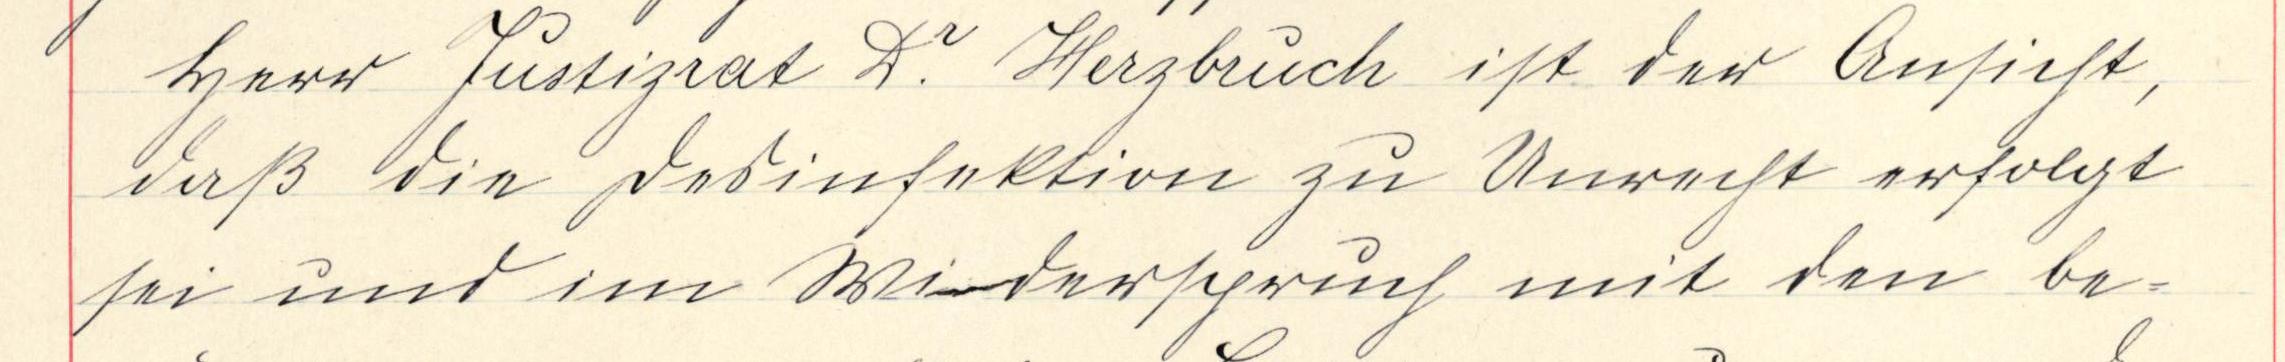 Herr Justizrat Dr. Herzbruch ist der Ansicht,
daß die Desinfektion zu Unrecht erfolgt
sei und im Widerspruch mit den be-